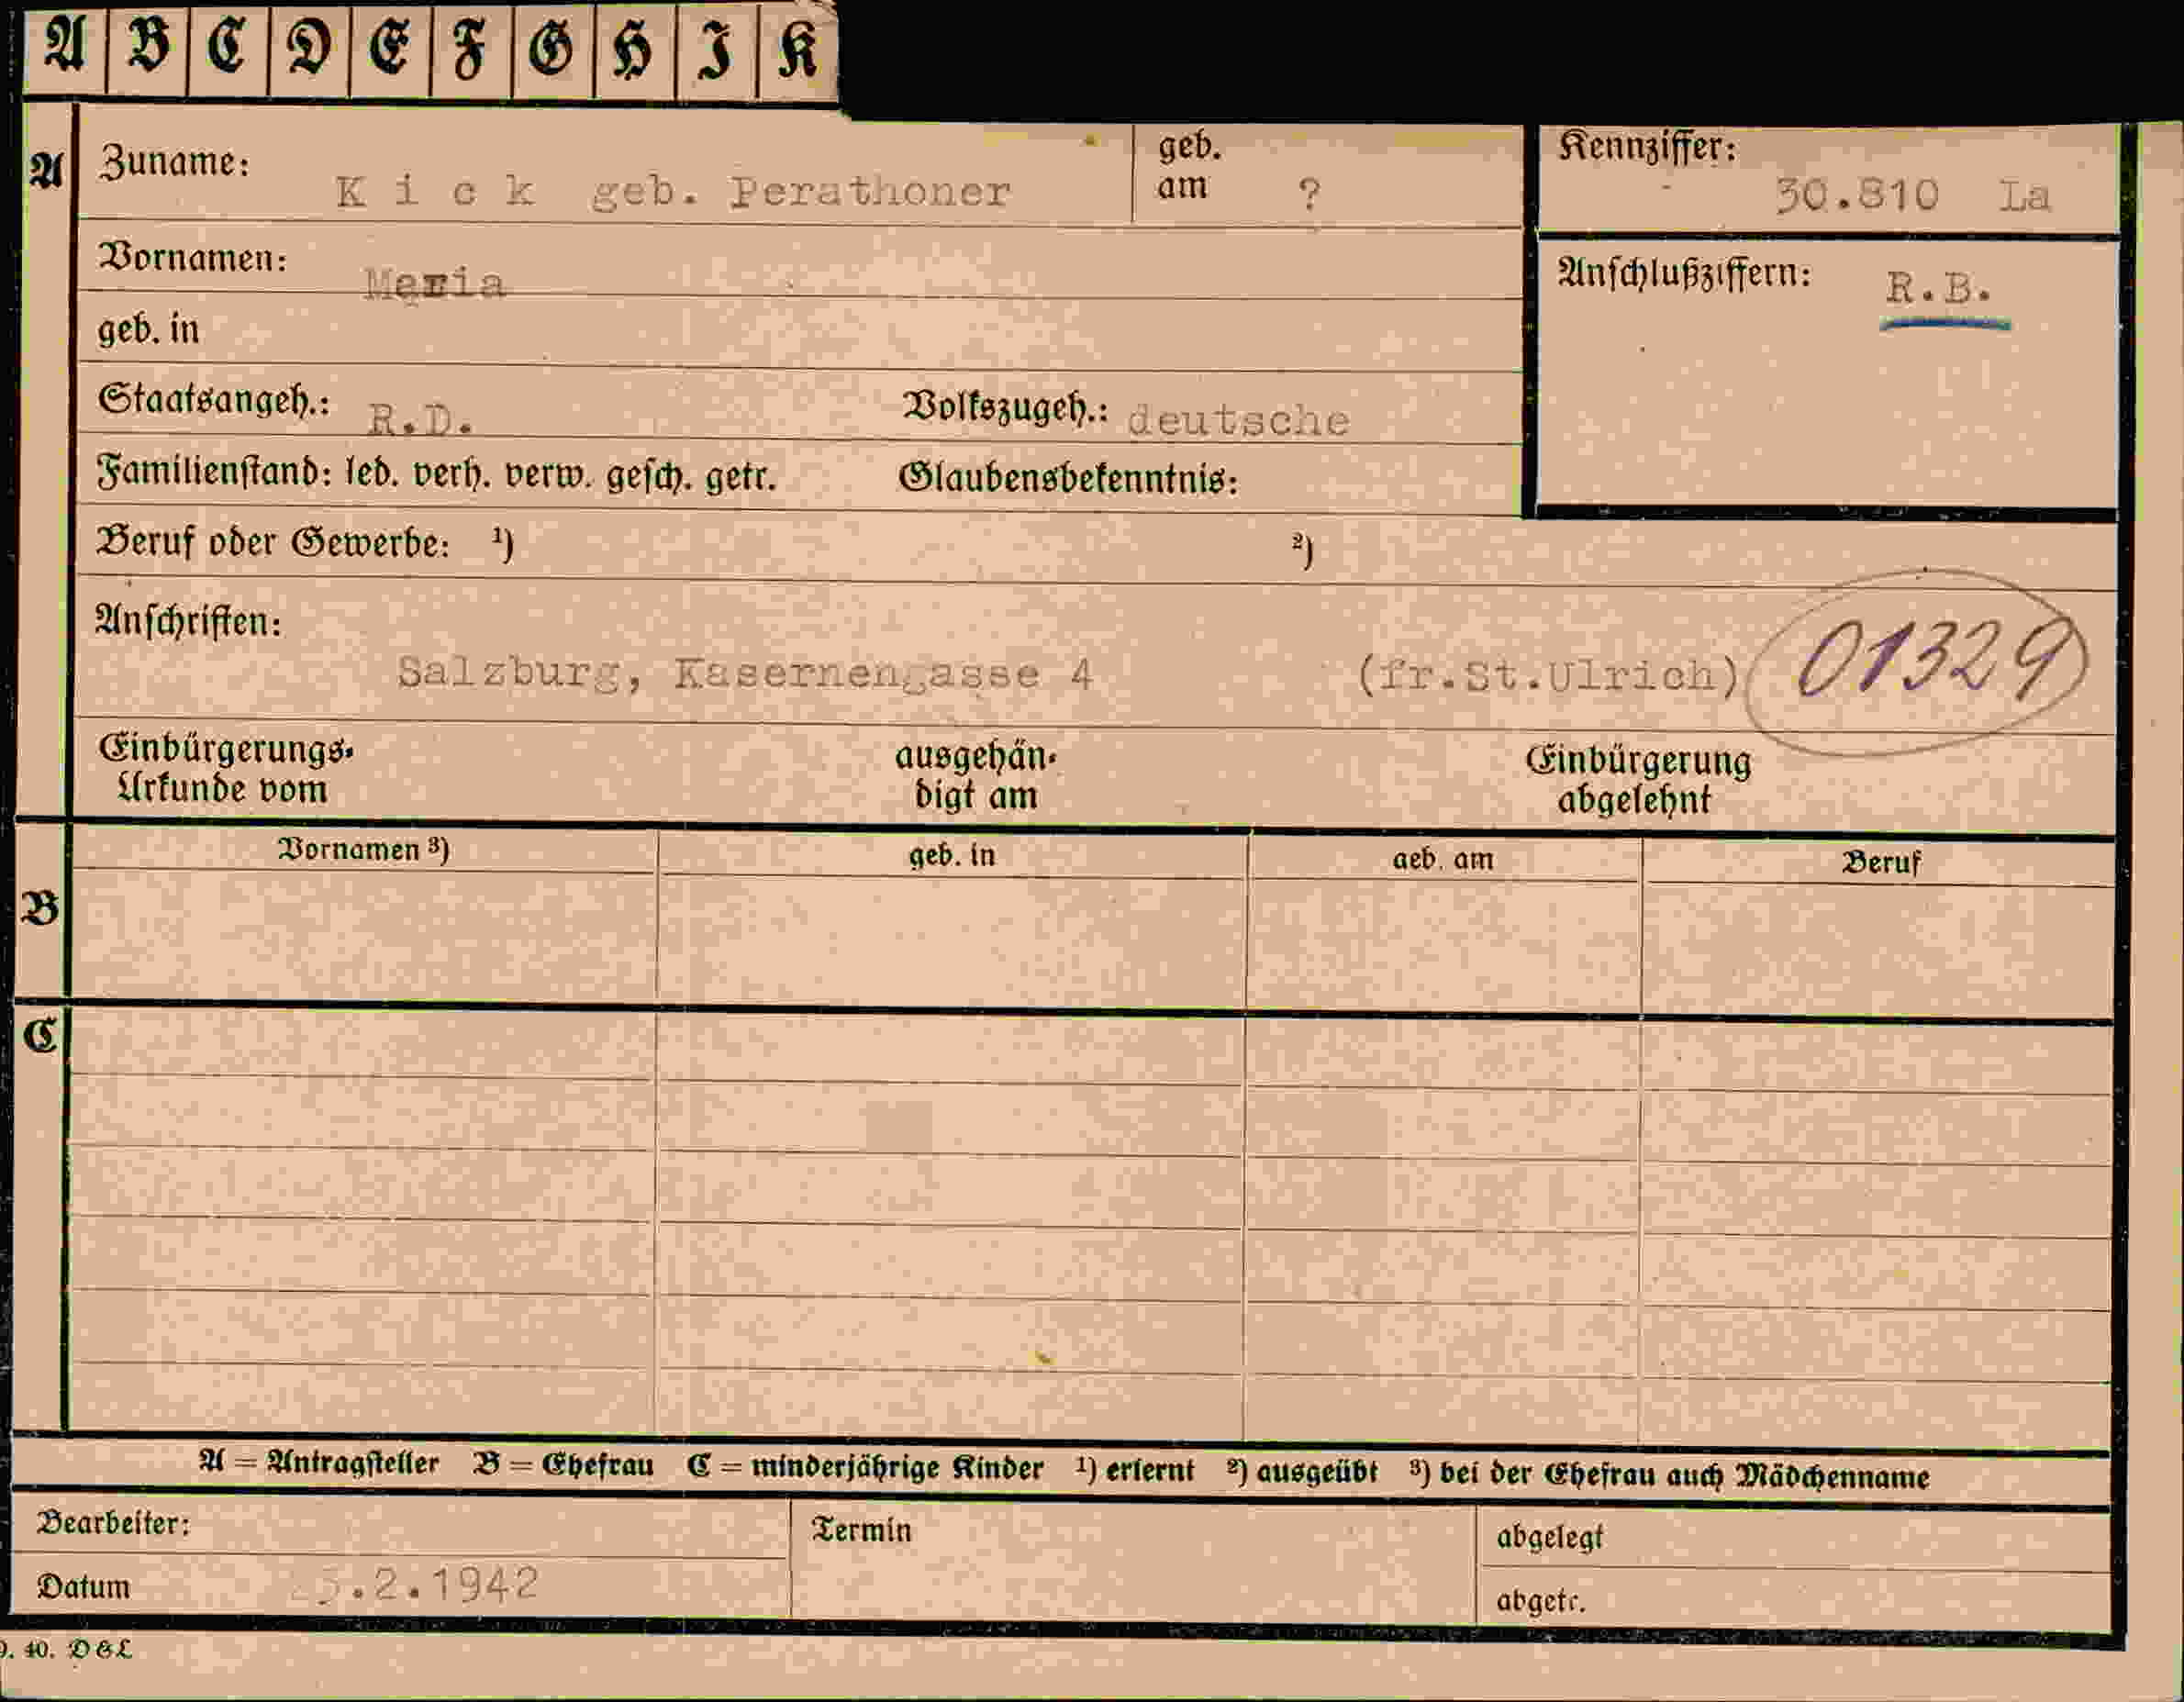 A B C D E F G H I K
A Zuname: K i c k geb. Perathoner geb. am ?
Kennziffer: 30.810 La
Vornamen: Maria
Anschlußziffern: R.B.
geb. in
Staatsangeh.: R.D. Volkszugeh.: deutsche
Familienstand: led. verh. verw. gesch. getr. Glaubensbekenntnis:
Beruf oder Gewerbe: ¹) ²)
Anschriften:
Salzburg, Kasernengasse 4 (fr.St.Ulrich) 01329
Einbürgerungs- ausgehän- Einbürgerung
Urkunde vom digt am abgelehnt
Vornamen ³) geb. in geb. am Beruf
B
C
A = Antragsteller B = Ehefrau C = minderjährige Kinder ¹) erlernt ²) ausgeübt ³) bei der Ehefrau auch Mädchenname
Bearbeiter: Termin abgelegt
Datum .2.1942
abgetr.
. 40. D&L